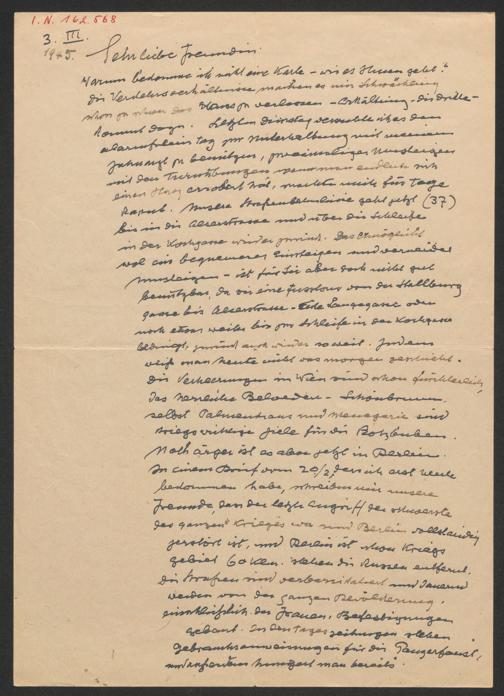 I.N. 162.568
3. III.
1945.
Sehr liebe Freundin.
Warum bekomme ich nicht eine Karte – wie es Ihnen geht?
die Verkehrsverhältnisse machen es mir
schon zu schwer das Haus zu verlassen – Erkältung – die dritte –
kommt dazu. Letzten Dienstag versuchte ich es den
alarmfreien Tag zur mit meinem
Zahnarzt zu benützen, zweimaliges Umsteigen
mit den wenn man endlich sich
einen erobert hat, machten mich für Tage
kaput. Unsere Straßenbahnlinie geht jetzt (37)
bis in die Alserstrasse und über die Schleife
in der Kochgasse wieder zurück. Das ermöglicht
wol ein bequemeres Einsteigen und vermeidet
Umsteigen – ist für Sie aber doch nicht gut
benützbar, da sie eine von der Skallburg
gasse bis Alserstrasse – Ecke Langegasse oder
noch etwas weiter bis zur Schleife in der Kochgasse
bedingt, zurück auch wieder so weit. Zudem
weiß man heute nicht was morgen geschieht.
die Verheerungen in Wien sind schon fürchterlich,
das herrliche Belvedere – Schönbrunn
selbst Palmenhaus und Menagerie sind
kriegswichtige Ziele für die Botzbuben.
Noch ärger ist es aber jetzt in Berlin.
In einem Brief vom 20/2, den ich erst heute
bekommen habe, schreiben mir unsere
Freunde, dass der letzte Angriff der schwerste
des ganzen Krieges war und Berlin vollständig
zerstört ist, und Berlin ist schon Kriegs
gebiet 60 klm. stehen die Russen entfernt.
die Straßen sind verbarrikadiert und dauernd
werden von der ganzen Bevölkerung,
einschließlich der Frauen, Befestigungen
gebaut. In den Tageszeitungen stehen
Gebrauchsanweisungen für die Panzerfaust,
und außerdem hungert man bereits.